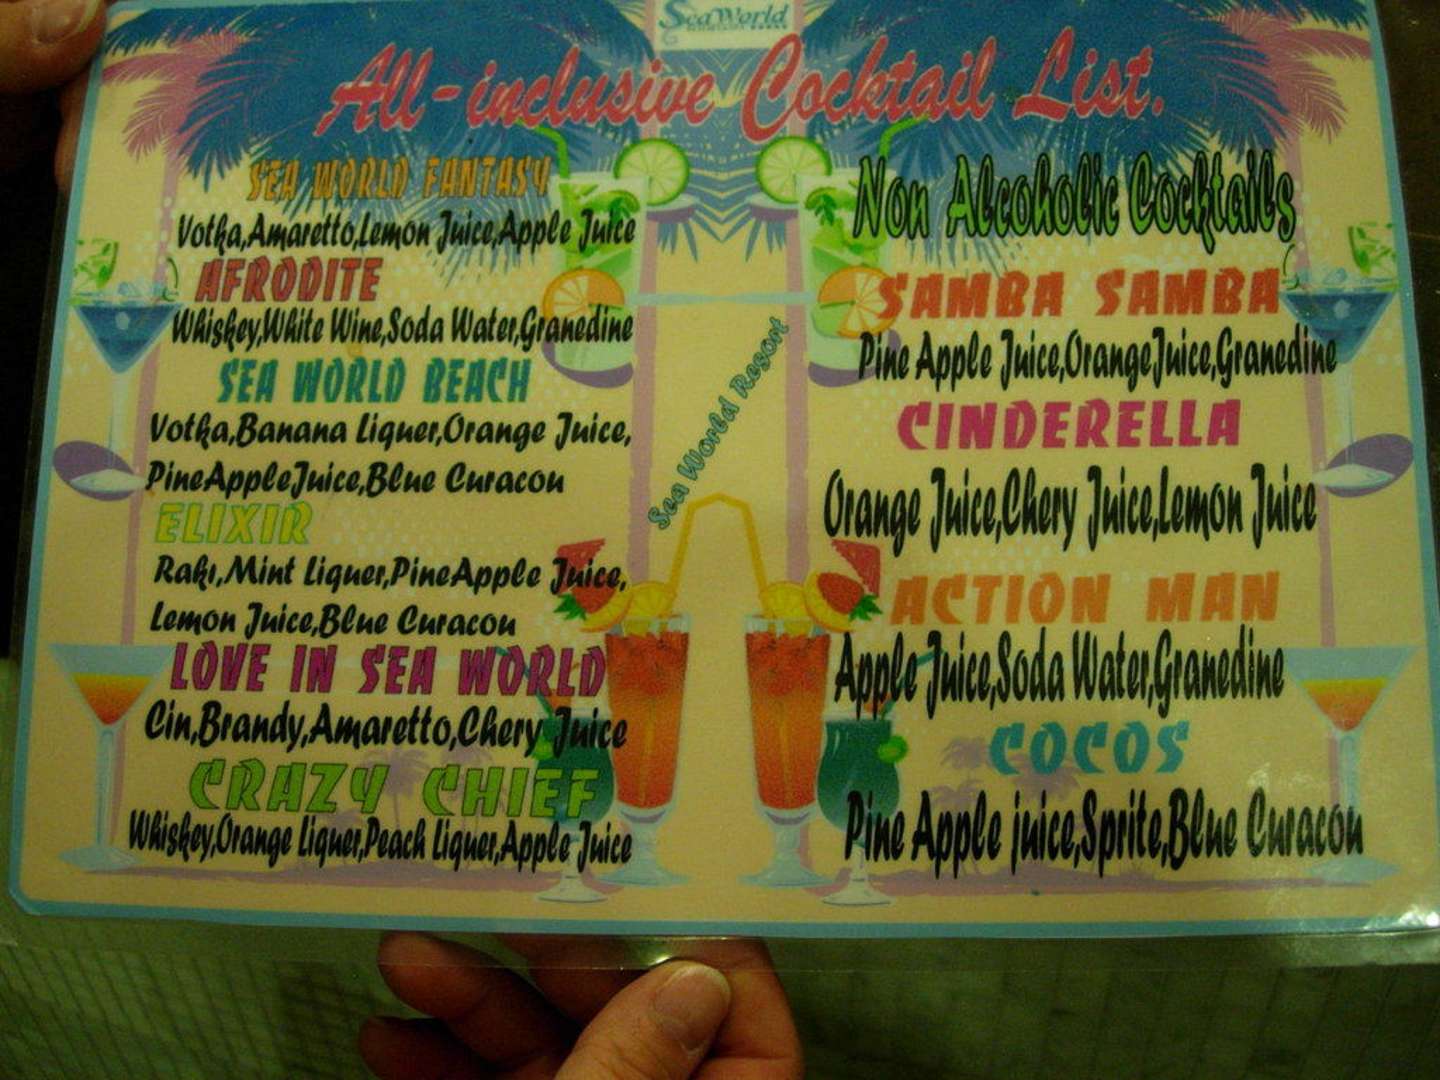 SeaWorld
All-inclusive Cocktail List.
SEA WORLD FANTASY
Votka,Amaretto,Lemon Juice,Apple Juice
AFRODITE
Whiskey,White Wine,Soda Water,Granedine
SEA WORLD BEACH
Votka,Banana Liquer,Orange Juice,
PineAppleJuice,Blue Curacou
ELIXIR
Rakı,Mint Liquer,PineApple Juice,
Lemon Juice,Blue Curacou
LOVE IN SEA WORLD
Cin,Brandy,Amaretto,Chery Juice
CRAZY CHIEF
Whiskey,Orange Liquer,Peach Liquer,Apple Juice
Sea World Resort
Non Alcoholic Cocktails
SAMBA SAMBA
Pine Apple Juice,OrangeJuice,Granedine
CINDERELLA
Orange Juice,Chery Juice,Lemon Juice
ACTION MAN
Apple Juice,Soda Water,Granedine
COCOS
Pine Apple juice,Sprite,Blue Curacou